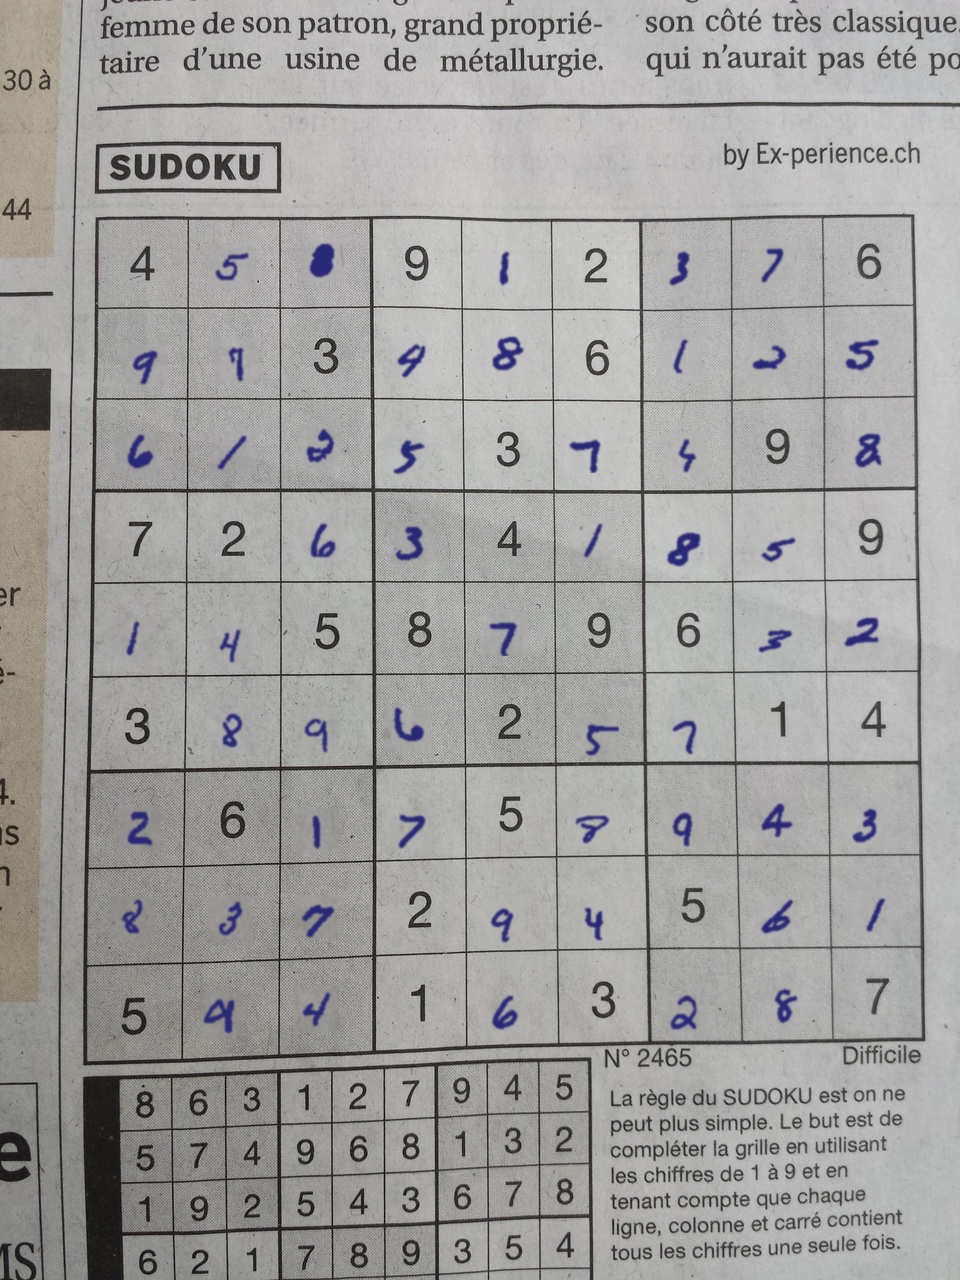 femme de son patron, grand proprié-
taire d'une usine de métallurgie.
son côté très classique,
qui n'aurait pas été po
30 à
44
SUDOKU
by Ex-perience.ch
4 5 8 9 1 2 3 7 6
9 7 3 4 8 6 1 2 5
6 1 2 5 3 7 4 9 8
7 2 6 3 4 1 8 5 9
1 4 5 8 7 9 6 3 2
3 8 9 6 2 5 7 1 4
2 6 1 7 5 8 9 4 3
8 3 7 2 9 4 5 6 1
5 9 4 1 6 3 2 8 7
N° 2465
Difficile
8 6 3 1 2 7 9 4 5
5 7 4 9 6 8 1 3 2
1 9 2 5 4 3 6 7 8
6 2 1 7 8 9 3 5 4
La règle du SUDOKU est on ne
peut plus simple. Le but est de
compléter la grille en utilisant
les chiffres de 1 à 9 et en
tenant compte que chaque
ligne, colonne et carré contient
tous les chiffres une seule fois.